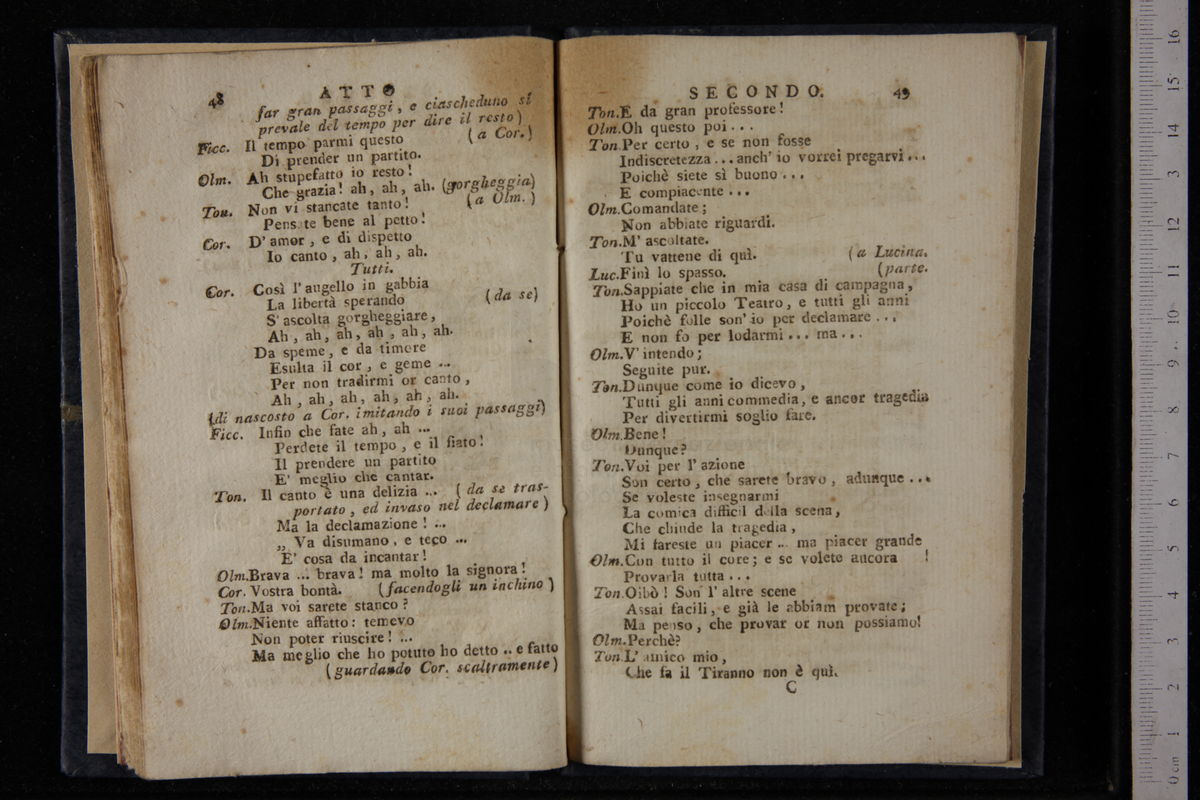 48 ATTO
far gran passaggi, e ciascheduno si
prevale del tempo per dire il resto)
Ficc. Il tempo parmi questo (a Cor.)
Di prender un partito.
Olm. Ah stupefatto io resto!
Che grazia! ah, ah, ah. (gorgheggia)
Ton. Non vi stancate tanto! (a Olm.)
Pensate bene al petto!
Cor. D'amor, e di dispetto
Io canto, ah, ah, ah.
Tutti.
Cor. Così l'augello in gabbia
La libertà sperando (da se)
S'ascolta gorgheggiare,
Ah, ah, ah, ah, ah, ah.
Da speme, e da timore
Esulta il cor, e geme ...
Per non tradirmi or canto,
Ah, ah, ah, ah, ah, ah.
(di nascosto a Cor. imitando i suoi passaggi)
Ficc. Infin che fate ah, ah ...
Perdete il tempo, e il fiato!
Il prendere un partito
E' meglio che cantar.
Ton. Il canto è una delizia ... (da se tras-
portato, ed invaso nel declamare)
Ma la declamazione! ...
„ Va disumano, e teco ...
E' cosa da incantar!
Olm. Brava ... brava! ma molto la signora!
Cor. Vostra bontà. (facendogli un inchino)
Ton. Ma voi sarete stanco?
Olm. Niente affatto: temevo
Non poter riuscire! ...
Ma meglio che ho potuto ho detto .. e fatto
(guardando Cor. scaltramente)
SECONDO. 49
Ton. E da gran professore!
Olm. Oh questo poi...
Ton. Per certo, e se non fosse
Indiscretezza... anch' io vorrei pregarvi...
Poichè siete sì buono...
E compiacente...
Olm. Comandate;
Non abbiate riguardi.
Ton. M' ascoltate.
Tu vattene di quì. (a Lucina.
Luc. Finì lo spasso. (parte.
Ton. Sappiate che in mia casa di campagna,
Ho un piccolo Teatro, e tutti gli anni
Poichè folle son' io per declamare...
E non fo per lodarmi... ma...
Olm. V' intendo;
Seguite pur.
Ton. Dunque come io dicevo,
Tutti gli anni commedia, e ancor tragedia
Per divertirmi soglio fare.
Olm. Bene!
Dunque?
Ton. Voi per l' azione
Son certo, che sarete bravo, adunque...
Se voleste insegnarmi
La comica difficil della scena,
Che chiude la tragedia,
Mi fareste un piacer ... ma piacer grande
Olm. Con tutto il core; e se volete ancora !
Provarla tutta...
Ton. Oibò! Son l' altre scene
Assai facili, e già le abbiam provate;
Ma penso, che provar or non possiamo!
Olm. Perchè?
Ton. L' amico mio,
Che fa il Tiranno non è quì.
C
0 cm 1 2 3 4 5 6 7 8 9 10 11 12 13 14 15 16